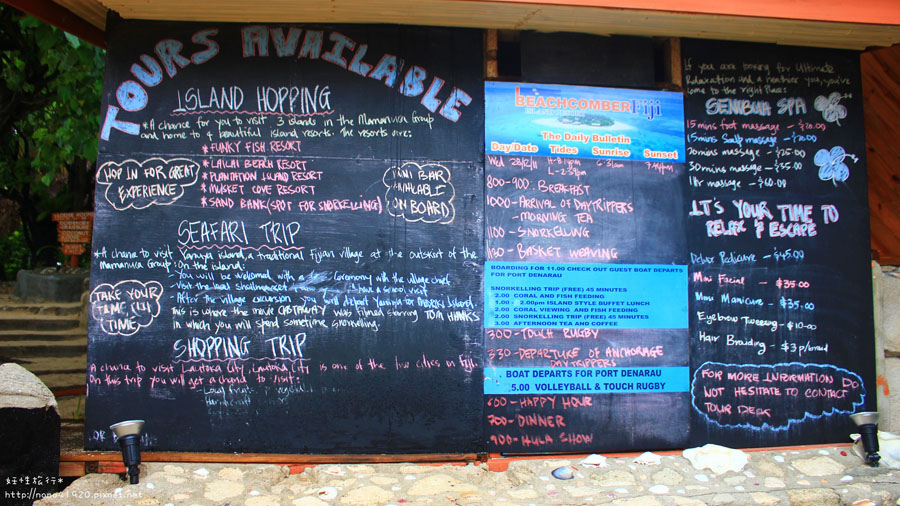 TOURS AVAILABLE
ISLAND HOPPING
* A chance for you to visit 3 islands in the Mamanuca Group
and home to 4 beautiful island resorts. The resorts are:
* FUNKY FISH RESORT
* LAILAI BEACH RESORT
* PLANTATION ISLAND RESORT
* MUSKET COVE RESORT
* SAND BANK (SPOT FOR SNORKELLING)
HOP IN FOR GREAT
EXPERIENCE!
MINI BAR
AVAILABLE
ON BOARD
SEAFARI TRIP
* A chance to visit Yanuya island, a traditional Fijian village at the outskist of the
Mamanuca Group: On the island:
- You will be welcomed with a Ceremony with the village chief
- Visit the local Shellmarket
- After the village excursion you will depart Yanuya for Modriki Island
this is where the movie CASTAWAY was filmed starring TOM HANKS
in which you will spend sometime snorkelling.
TAKE YOUR
TIME
TIME
SHOPPING TRIP
A chance to visit Lautoka City. Lautoka City is one of the two cities in Fiji.
On this trip you will get a chance to visit:
BEACHCOMBER Fiji
The Daily Bulletin
Day/Date Tides Sunrise Sunset
Wed
800-900 - BREAKFAST
1000 - ARRIVAL OF DAYTRIPPERS
- MORNING TEA
1100 - SNORKELLING
1130 - BASKET WEAVING
BOARDING FOR 11.00 CHECK OUT GUEST BOAT DEPARTS
FOR PORT DENARAU
SNORKELLING TRIP (FREE) 45 MINUTES
2.00 CORAL AND FISH FEEDING
2.00pm ISLAND STYLE BUFFET LUNCH
2.00 CORAL VIEWING AND FISH FEEDING
2.00 SNORKELLING TRIP (FREE) 45 MINUTES
3.00 AFTERNOON TEA AND COFFEE
300 - TOUCH RUGBY
330 - DEPARTURE OF ANCHORAGE
DAYTRIPPERS
BOAT DEPARTS FOR PORT DENARAU
5.00 VOLLEYBALL & TOUCH RUGBY
600 - HAPPY HOUR
700 - DINNER
900 - HULA SHOW
If you are looking for Ultimate
Relaxation and a
come to the right Place:
SENIBUA SPA
15mins foot massage -
15mins Scalp massage -
20mins massage - $25.00
30mins massage - $35.00
1Hr massage - $60.00
IT'S YOUR TIME TO
RELAX & ESCAPE
Delux Pedicure - $45.00
Mini Facial - $35.00
Mini Manicure - $35.00
Eyebrow Tweezing - $10.00
Hair Braiding - $3 p/braid
FOR MORE INFORMATION DO
NOT HESITATE TO CONTACT
TOUR DESK
http://nono41920.pixnet.net